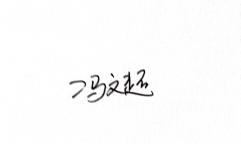 冯文超